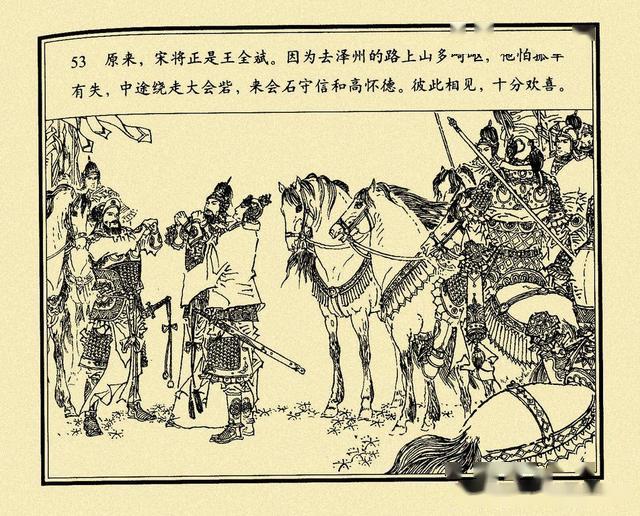 53 原来，宋将正是王全斌。因为去泽州的路上山多崎岖，他怕孤军
有失，中途绕走大会砦，来会石守信和高怀德。彼此相见，十分欢喜。